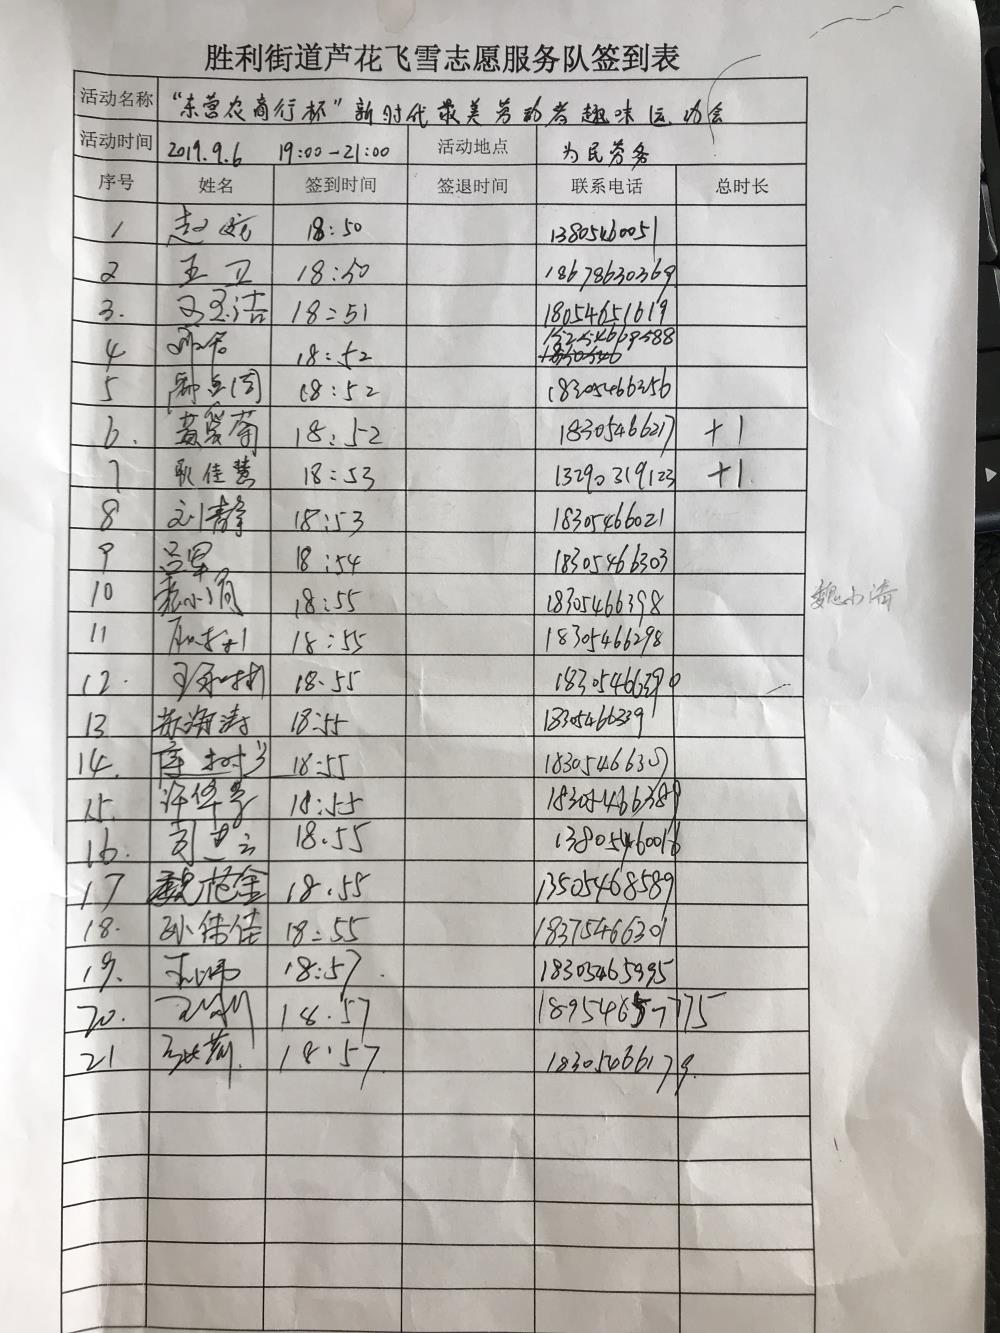 胜利街道芦花飞雪志愿服务队签到表
活动名称 “东营农商行杯”新时代最美劳动者趣味运动会
活动时间 2019.9.6 19:00-21:00 活动地点 为民劳务
序号 姓名 签到时间 签退时间 联系电话 总时长
1 18:50 13805460051
2 王卫 18:50 18678630369
3. 洁 18:51 18054651619
4 18:52
5 18:52 18305466356
6. 黄翠菊 18:52 18305466217 +1
7 耿佳慧 18:53 13290319123 +1
8 刘静 18:53 18305466021
9 吕军 18:54 18305466303
10 18:55 18305466398 魏小清
11 18:55 18305466298
12. 18.55 18305466390
13 海涛 18:55
14. 18:55
15. 许华 18:55 18305466389
16. 18.55 13805460016
17 魏花金 18.55 13505468589
18. 孙伟佳 18:55 18375466301
19. 18:57. 18305465995
20. 18.57 18954657775
21 18.57. 18305466179.